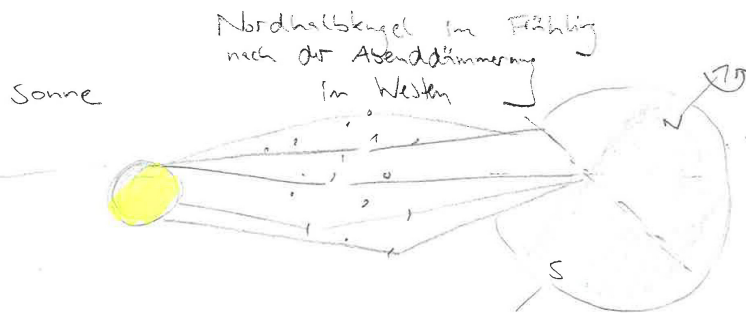 Nordhalbkugel im Frühling
nach der Abenddämmerung
im Westen
Sonne
N
S